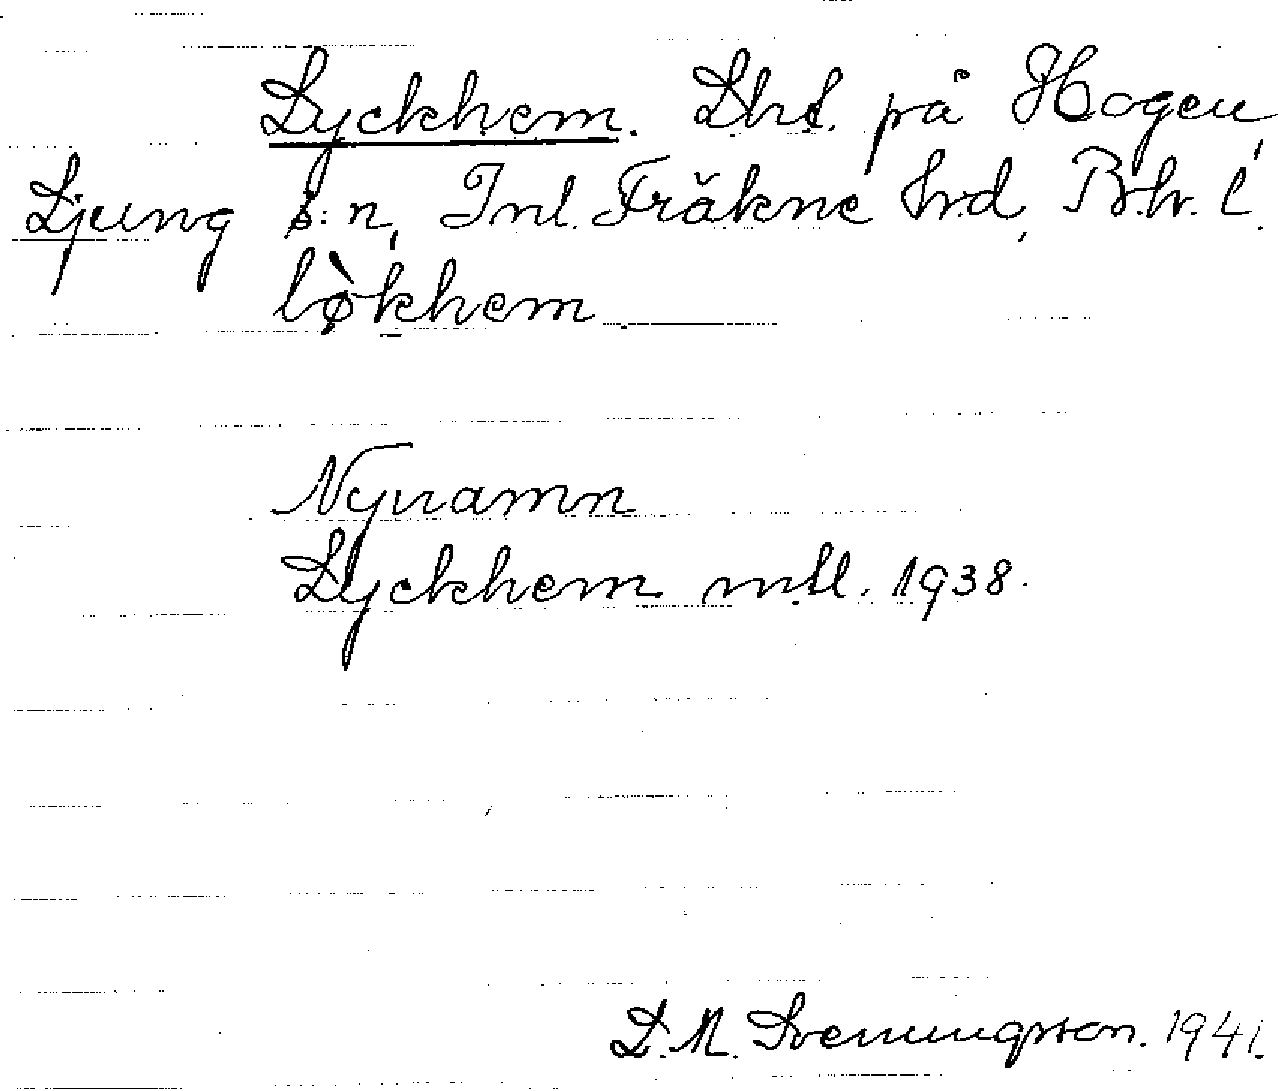 Lyckhem. Lht. på Hogen,
Ljung s:n, Inl. Fräkne hrd, B.hr. l.
lø̀khem
Nynamn
Lyckhem mtl. 1938.
L. M. Svenungsson. 1941.